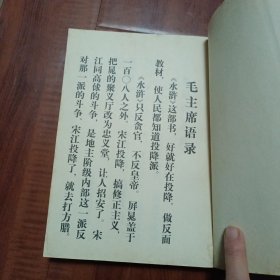 毛主席语录
《水浒》这部书，好就好在投降。做反面
教材，使人民都知道投降派。
《水浒》只反贪官，不反皇帝。屏晁盖于
一百〇八人之外。宋江投降，搞修正主义，
把晁的聚义厅改为忠义堂，让人招安了。宋
江同高俅的斗争，是地主阶级内部这一派反
对那一派的斗争。宋江投降了，就去打方腊。